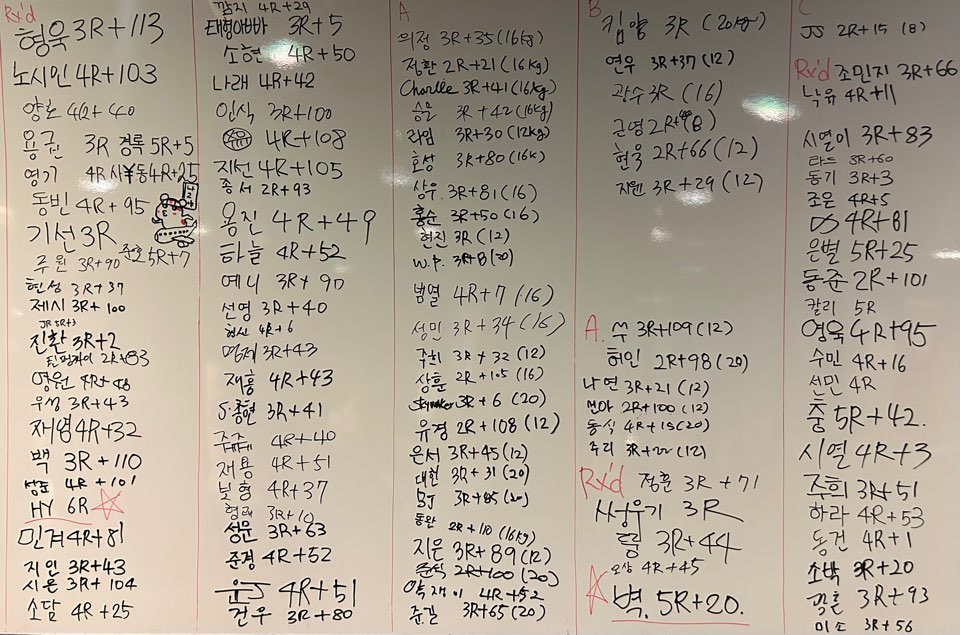 Rx'd
형욱 3R+113
노시인 4R+103
양호 4R+40
용권 3R 경록 5R+5
영기 4R 4R+25
동빈 4R+95
기선 3R
주원 3R+90 5R+7
현성 3R+37
제시 3R+100
JR 5R+3
진환 3R+2
2R+83
영원 4R+48
우성 3R+43
재영 4R+32
백 3R+110
성준 4R+101
HY 6R
민겨 4R+81
지인 3R+43
시은 3R+104
소담 4R+25
감자 4R+29
태형아빠 3R+5
소현 4R+50
나래 4R+42
인식 3R+100
4R+108
지선 4R+105
종서 2R+93
용진 4R+49
하늘 4R+52
예니 3R+90
선영 3R+40
4R+6
명제 3R+43
재홍 4R+43
S.종현 3R+41
쥬쥬 4R+40
재용 4R+51
보형 4R+37
형래 3R+10
성문 3R+63
준경 4R+52
윤J 4R+51
건우 3R+80
A
의정 3R+35 (16kg)
정환 2R+21 (16kg)
Charlie 3R+41 (16kg)
승모 3R+42 (16kg)
라임 3R+30 (12kg)
효성 3R+80 (16k)
상우 3R+81 (16)
홍순 3R+50 (16)
현진 3R (12)
W.P. 3R+8 (20)
범열 4R+7 (16)
성민 3R+34 (16)
주희 3R+32 (12)
상훈 2R+105 (16)
3R+6 (20)
유경 2R+108 (12)
은서 3R+45 (12)
대현 3R+31 (20)
BJ 3R+85 (20)
동완 2R+110 (16kg)
지은 3R+89 (12)
준식 2R+100 (20)
4R+52
준길 3R+65 (20)
B
킴얄 3R (20kg)
연우 3R+37 (12)
광수 3R (16)
근영 2R+ (8)
현욱 2R+66 (12)
지원 3R+29 (12)
A. 쑤 3R+109 (12)
허인 2R+98 (20)
나연 3R+21 (12)
2R+100 (12)
동식 4R+15 (20)
주리 3R+22 (12)
Rx'd 정훈 3R+71
새우기 3R
3R+44
오상 4R+45
벽. 5R+20.
C
JS 2R+15 (8)
Rx'd 조민지 3R+66
낙유 4R+11
시열이 3R+83
타드 3R+60
동기 3R+3
조은 4R+5
DS 4R+81
은별 5R+25
동준 2R+101
칼리 5R
영욱 4R+95
수민 4R+16
선민 4R
충 5R+42.
시열 4R+3
주희 3R+51
하라 4R+53
동건 4R+1
소박 3R+20
3R+93
미소 3R+56